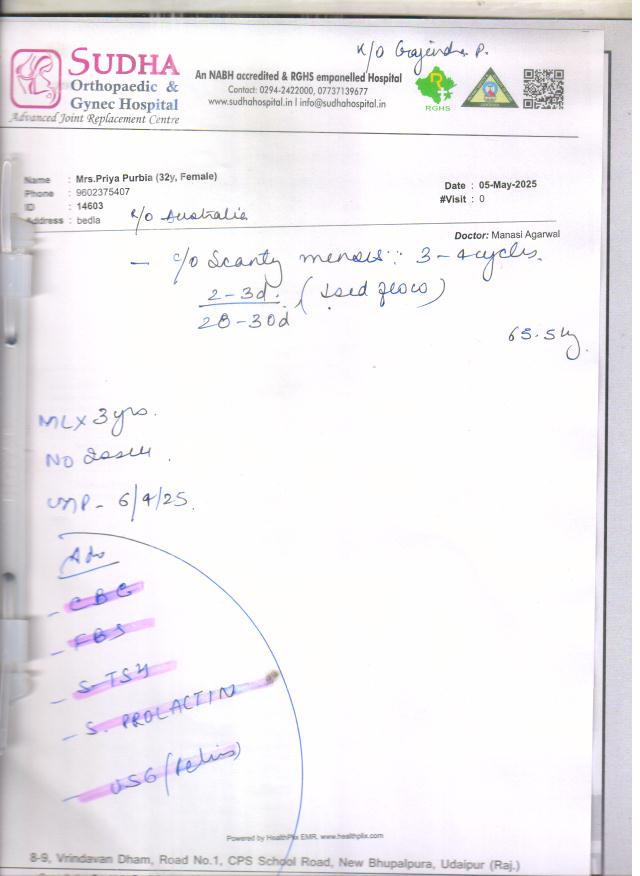 K/O Gajendra P.
SUDHA
Orthopaedic &
Gynec Hospital
Advanced Joint Replacement Centre
An NABH accredited & RGHS empanelled Hospital
Contact: 0294-2422000, 07737139677
www.sudhahospital.in | info@sudhahospital.in
RGHS
Name : Mrs.Priya Purbia (32y, Female)
Phone : 9602375407
ID : 14603
Address : bedla
R/o Australia
Date : 05-May-2025
#Visit : 0
Doctor: Manasi Agarwal
– c/o Scanty menses : 3-4 cycles.
2-3d.
28-30d
65.5kg
MLx 3 yrs.
No issue.
LMP - 6/4/25.
Adv
– CBC
– FBS
– S.TSH
– S. PROLACTIN
– USG (Pelvis)
Powered by HealthPlix EMR. www.healthplix.com
8-9, Vrindavan Dham, Road No.1, CPS School Road, New Bhupalpura, Udaipur (Raj.)